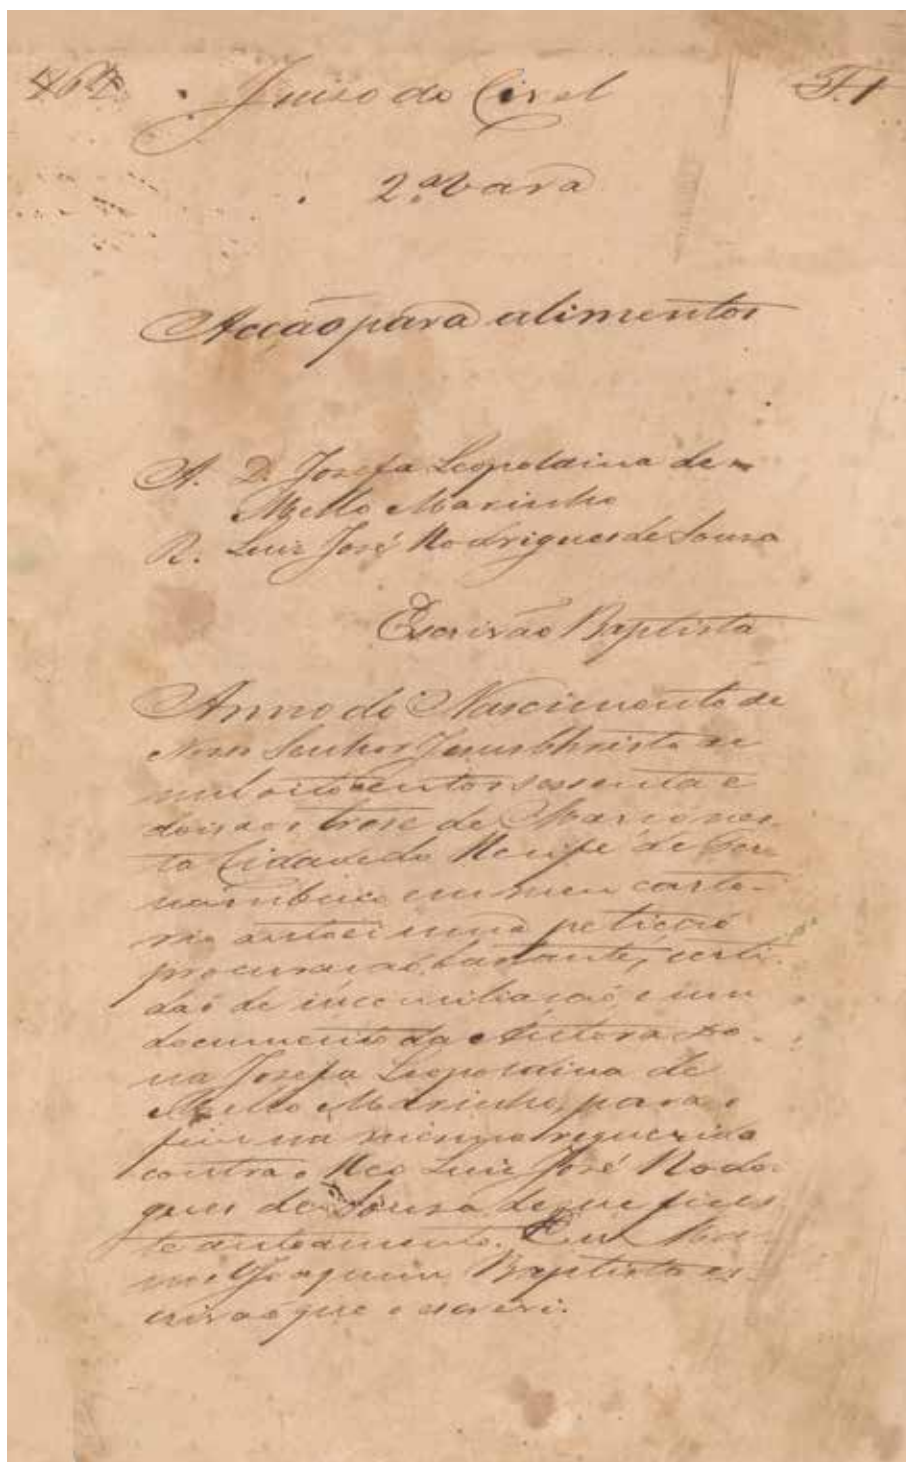 464 Juizo do Civel F. 1
2ª vara
Acção para alimentos
A. D. Josefa Leopoldina de
Mello Marinho
R. Luiz José Rodrigues de Souza
Escrivão Baptista
Anno do Nascimento de
Nosso Senhor Jesus Christo de
mil oitocentos sessenta e
dois aos trese de Março nes-
ta Cidade do Recife de Per
nambuco em meu carto-
rio autoei uma petição
procuração bastante, certi-
dão de inconciliação e um
documento da Autora Do-
na Josefa Leopoldina de
Mello Marinho, para o
fim na mesma requerido
contra o Reo Luiz José Rodri
gues de Souza de que fiz es-
te autoamento. Eu Ma-
noel Joaquim Baptista es-
crivão que o escrevi.